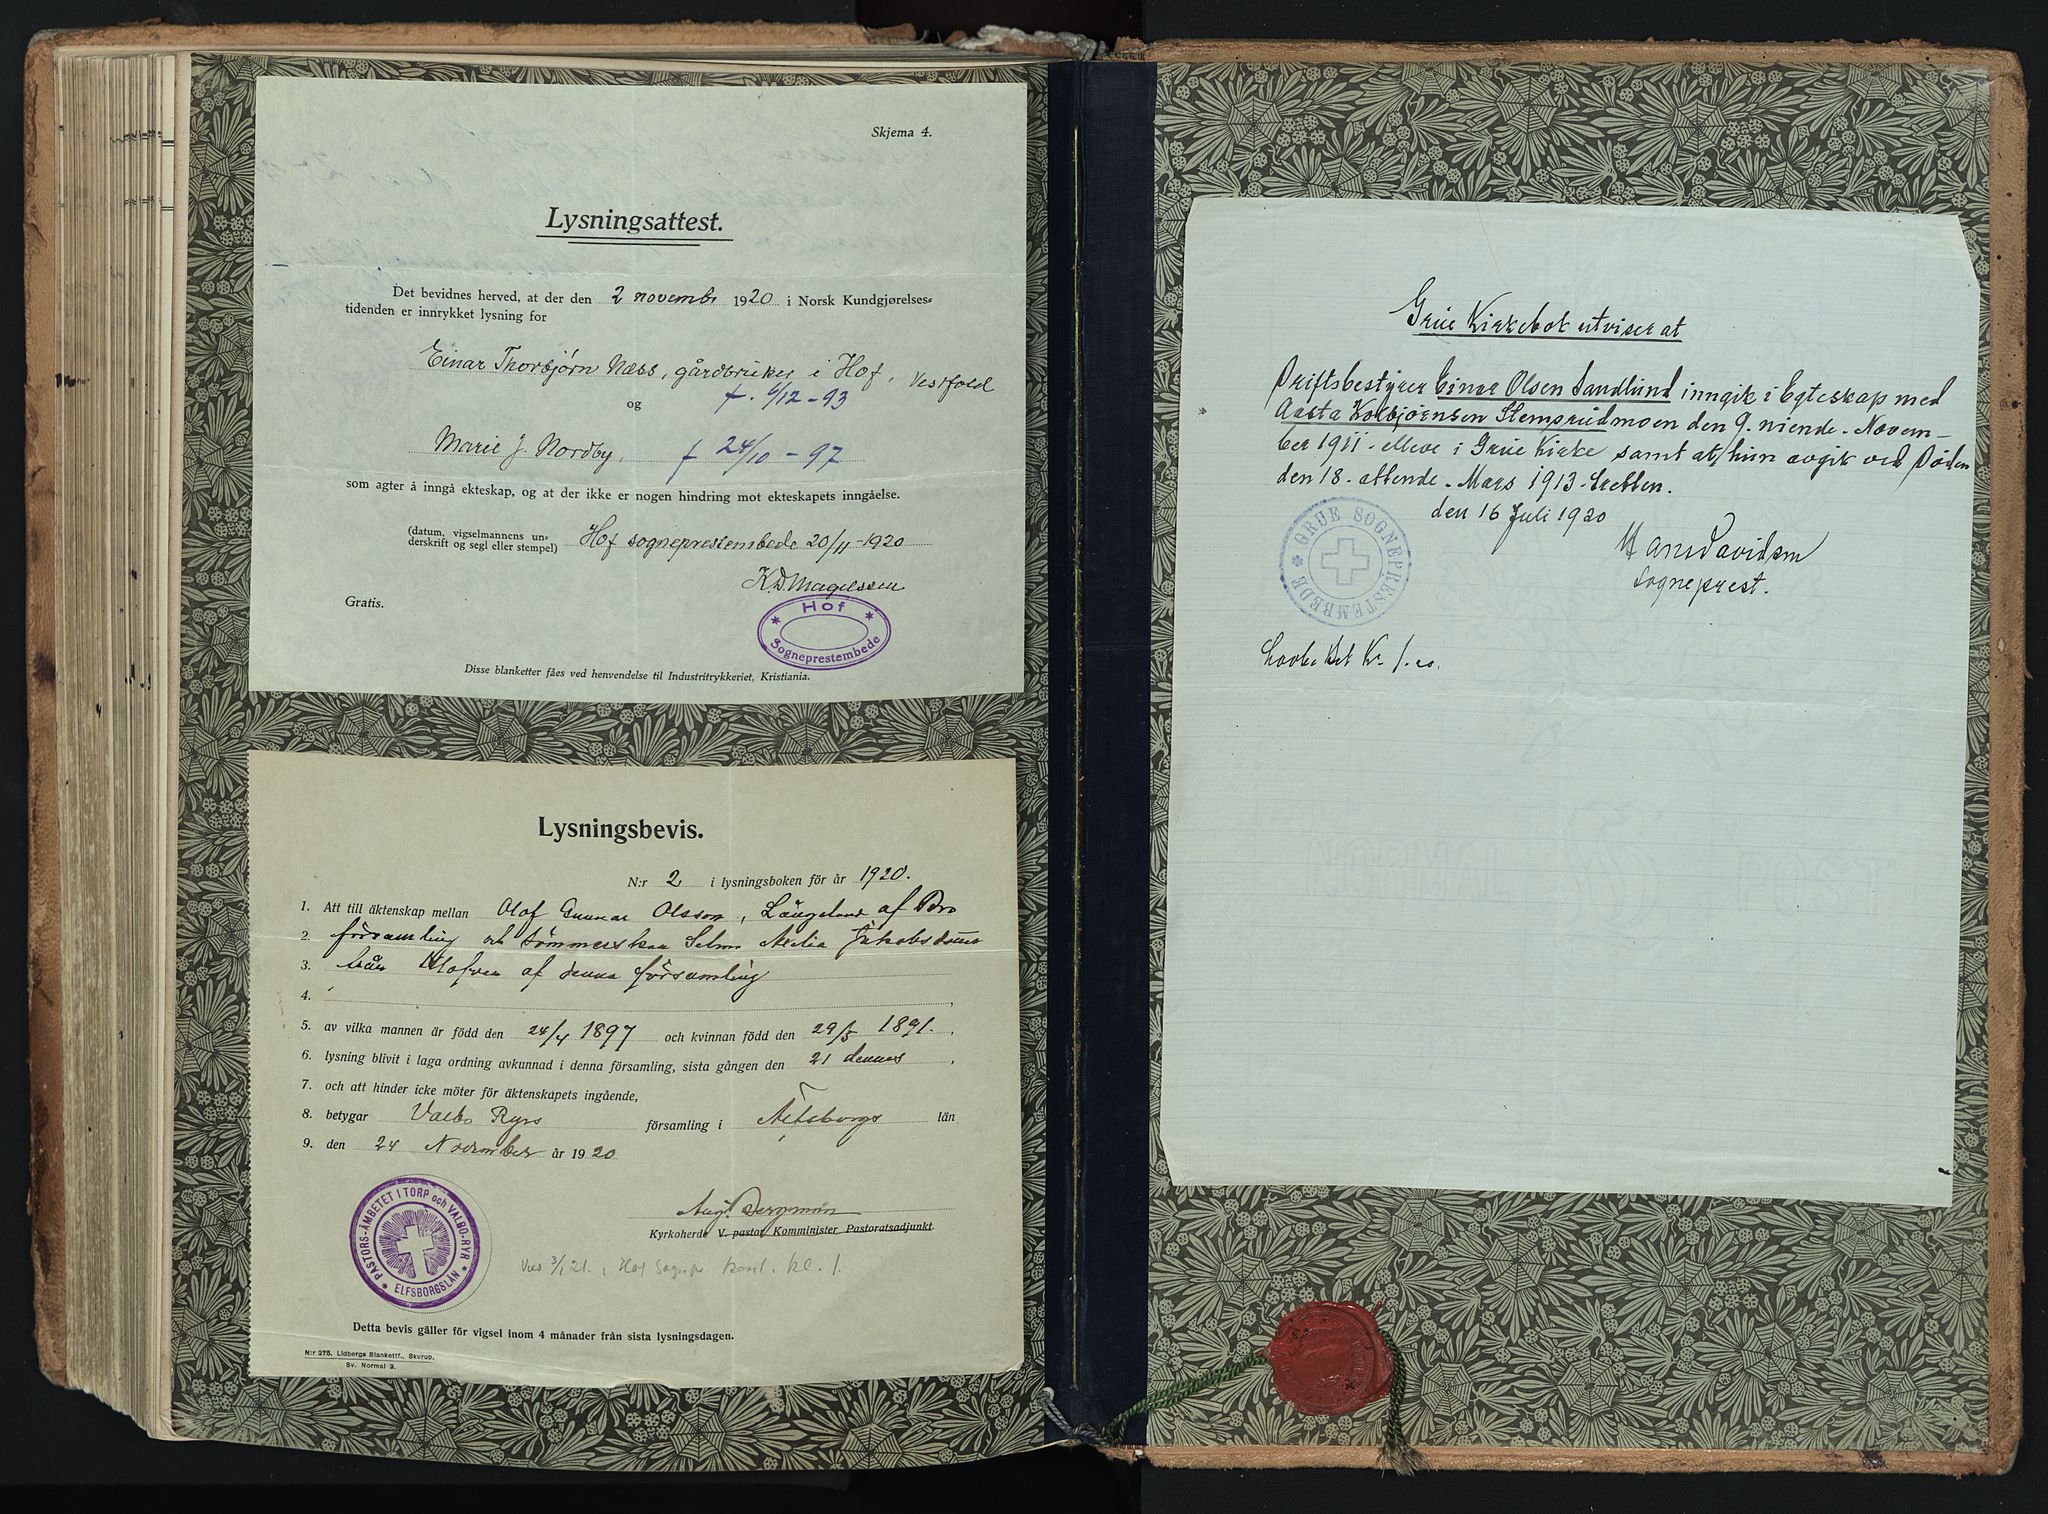 Skjema 4.
Lysningsattest.
Det bevidnes herved, at der den 2 novembr 1920 i Norsk Kundgjørelses=
tidenden er innrykket lysning for
Einar Thorbjørn Næss, gårdbruker i Hof, Vestfold
og f. 6/12 - 93
Marie J. Nordby, f 24/10 - 97
som agter å inngå ekteskap, og at der ikke er nogen hindring mot ekteskapets inngåelse.
(datum, vigselmannens un-
derskrift og segl eller stempel) Hof sogneprestembede 20/11 - 1920
K.D. Magelssen
Gratis.
Hof
Sogneprestembede
Disse blanketter fåes ved henvendelse til Industritrykkeriet, Kristiania.
Lysningsbevis.
N:r 2 i lysningsboken för år 1920.
1. Att till äktenskap mellan Olof Gunnar Olsson, Längeland af Bro
2. församling och sömmerskan Selma Adelia Jakobsdotter
3. från af denna församling
4.
5. av vilka mannen är född den 24/4 1897 och kvinnan född den 29/5 1891.,
6. lysning blivit i laga ordning avkunnad i denna församling, sista gången den 21 dennes,
7. och att hinder icke möter för äktenskapets ingående,
8. betygar Valbo Ryrs församling i Älfsborgs län
9. den 24 November år 1920
Aug. Bergman
Kyrkoherde V. pastor Komminister Pastoratsadjunkt
PASTORS-ÄMBETET I TORP och VALBO-RYR
ELFSBORGSLÄN
Vied 3/1 21. i Hof Sognepr kont. kl. 1.
Detta bevis gäller för vigsel inom 4 månader från sista lysningsdagen.
N:r 275. Lidbergs Blankettf., Skurup.
Sv. Normal 3.
Grue Kirkebok utviser at
Driftsbestyrer Einar Olsen Sandlund inngik i Egteskap med
Aasta Kolbjørnsen Stemsrudmoen den 9. niende - Novem-
ber 1911 - elleve i Grue Kirke samt at hun avgik ved Døden
den 18 - attende - Mars 1913 - tretten.
den 16 Juli 1920
Hans Davidsen
Sogneprest.
GRUE SOGNEPRESTEMBEDE
Kr. 1.00.